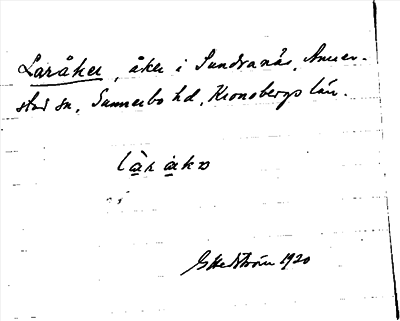 Laråker, åker i Sundranäs, Anner-
stad sn, Sunnerbo hd, Kronobergs län.
lar åkə
Hedström 1920